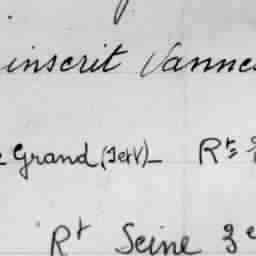 inscrit Vannes
Grand (Set V) Rt
Rt Seine 3e